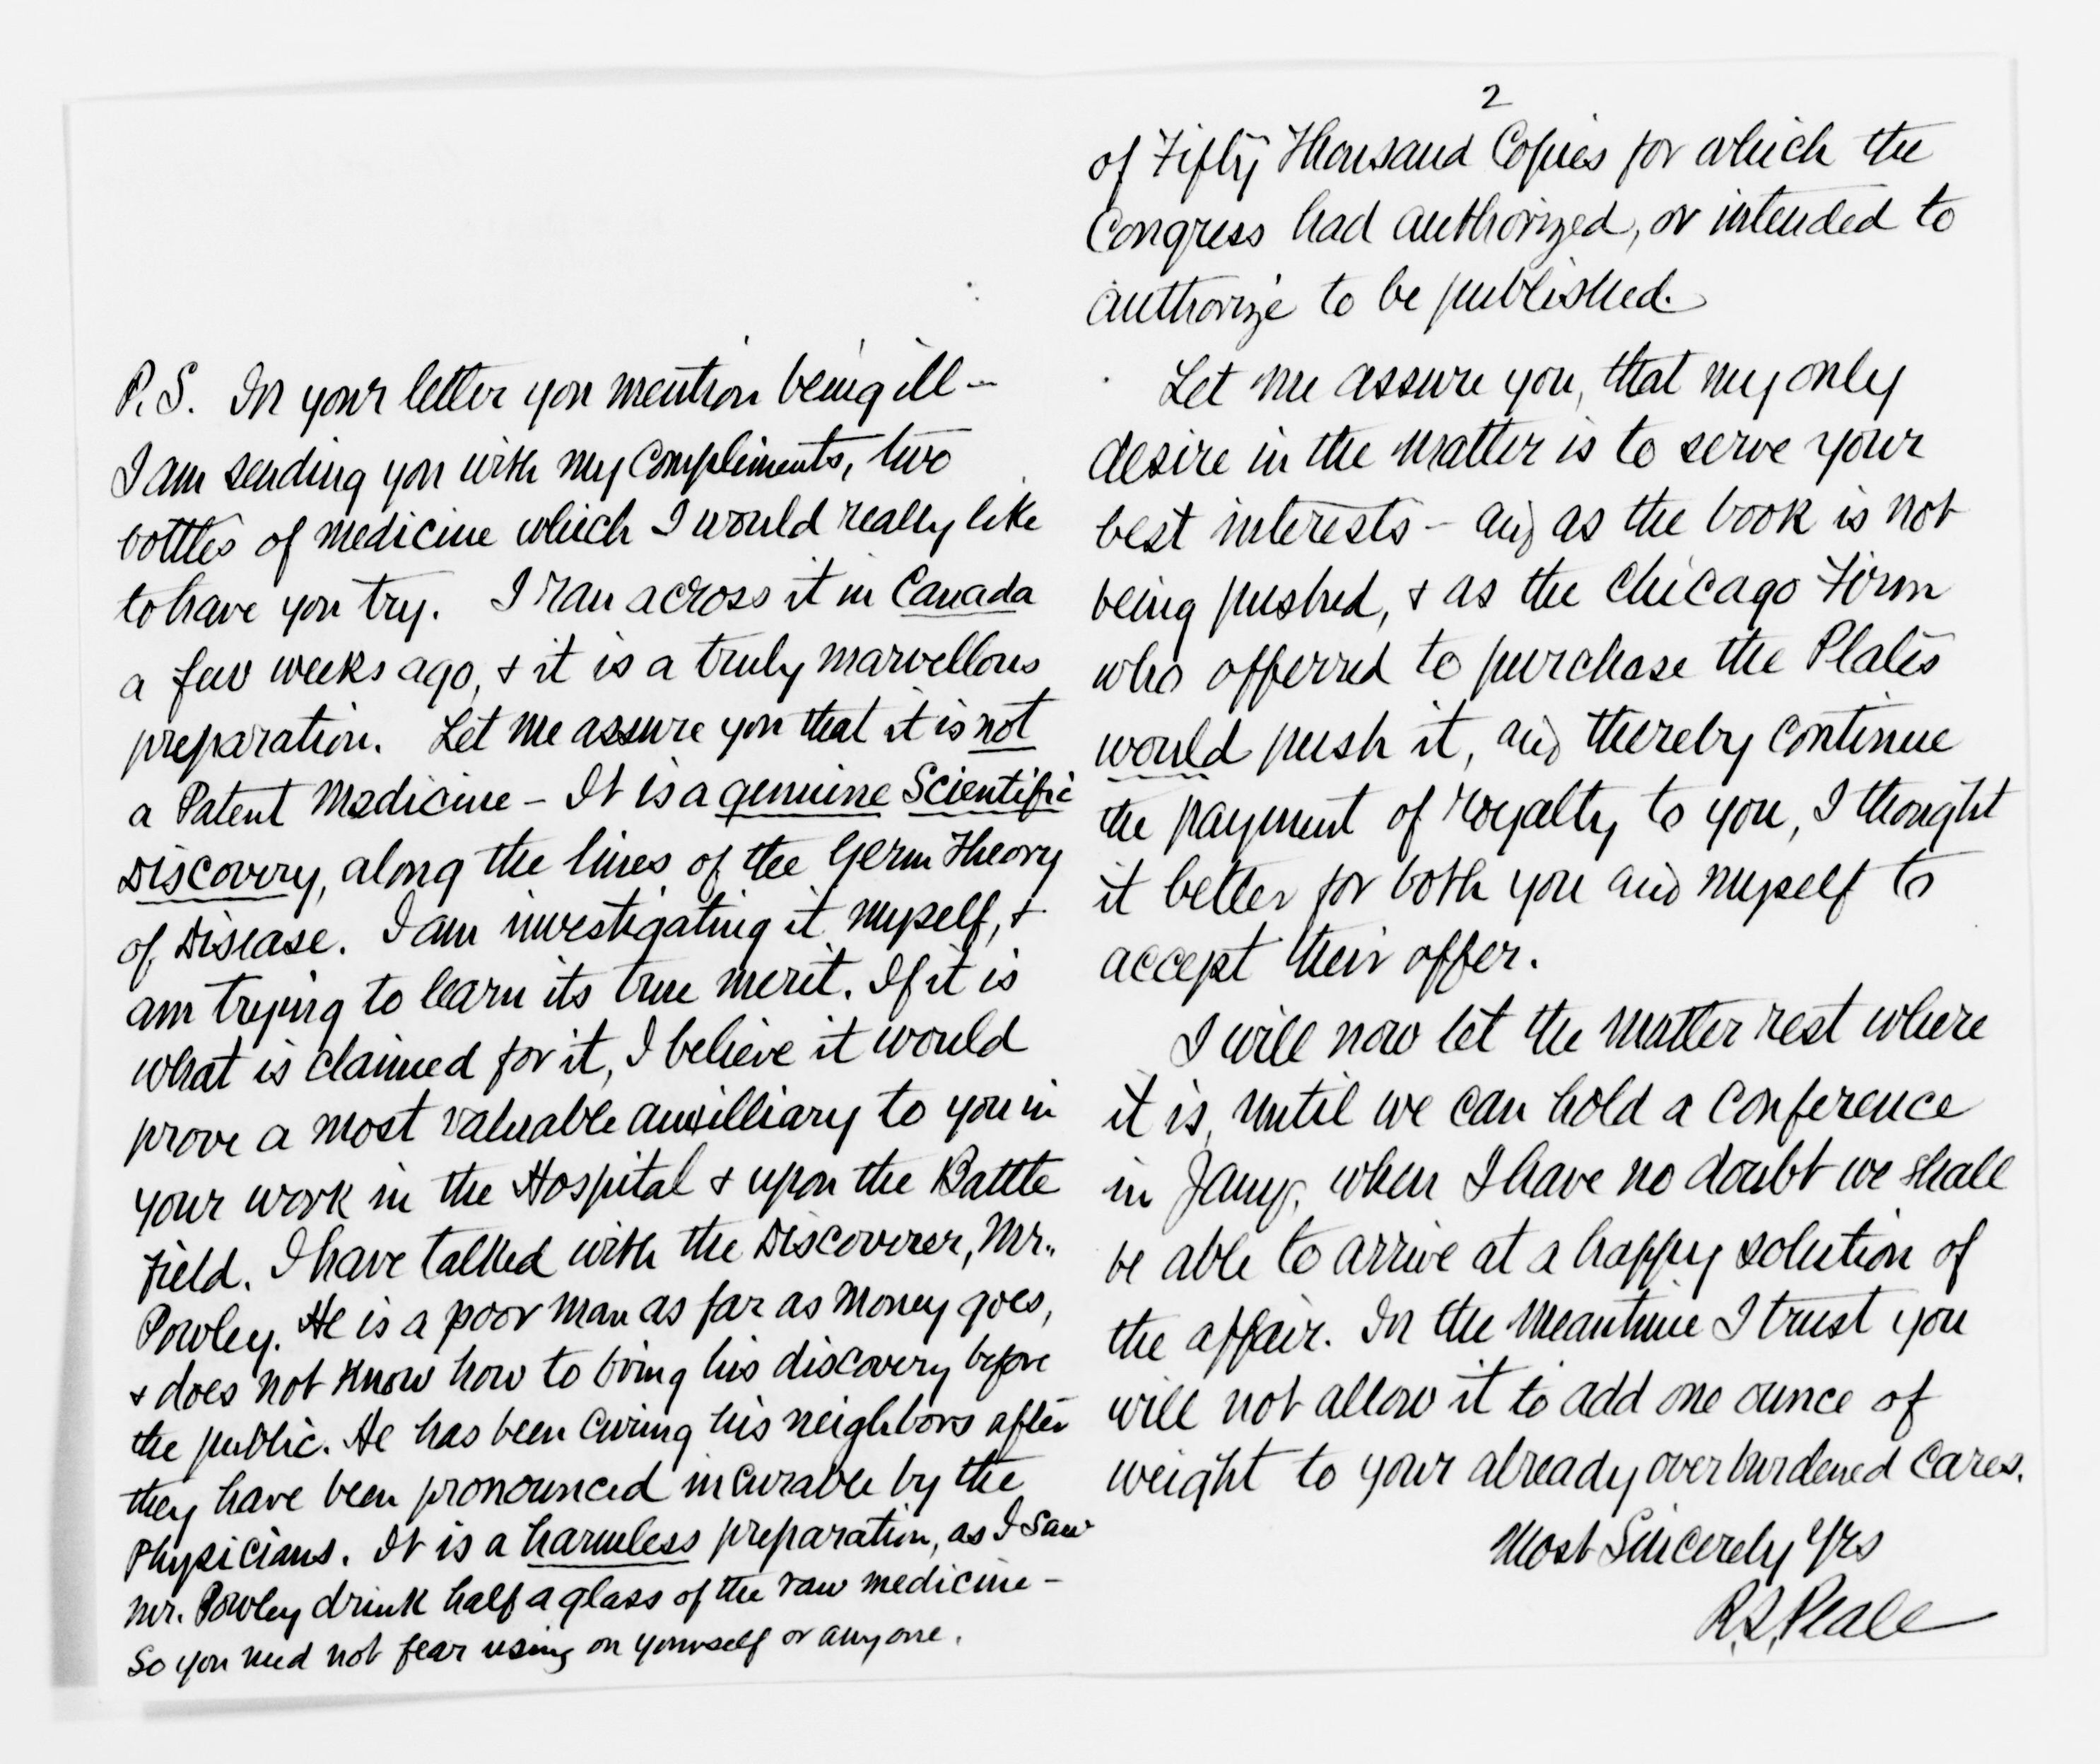 2
of Fifty Thousand Copies for which the
Congress had authorized, or intended to
authorize to be published.
Let me assure you, that my only
desire in the matter is to serve your
best interests - and as the book is not
being pushed, & as the Chicago Firm
who offerred to purchase the Plates
would push it, and thereby continue
the payment of royalty to you, I thought
it better for both you and myself to
accept their offer.
I will now let the matter rest where
it is, until we can hold a conference
in Jany, when I have no doubt we shall
be able to arrive at a happy solution of
the affair. In the Meantime I trust you
will not allow it to add one ounce of
weight to your already overburdened cares.
Most Sincerely Yrs
R.S. Peale
P.S. In your letter you mention being ill -
I am sending you with my compliments, two
bottles of medicine which I would really like
to have you try. I ran across it in Canada
a few weeks ago, & it is a truly marvellous
preparation. Let me assure you that it is not
a Patent Medicine - It is a genuine Scientific
Discovery, along the lines of the Germ Theory
of Disease. I am investigating it myself, &
am trying to learn its true merit. If it is
what is claimed for it, I believe it would
prove a most valuable auxilliary to you in
your work in the Hospital & upon the Battle
Field. I have talked with the Discoverer, Mr.
Powley. He is a poor man as far as money goes,
& does not know how to bring his discovery before
the public. He has been curing his neighbors after
they have been pronounced incurable by the
Physicians. It is a harmless preparation, as I saw
Mr. Powley drink half a glass of the raw medicine -
So you need not fear using on yourself or anyone.